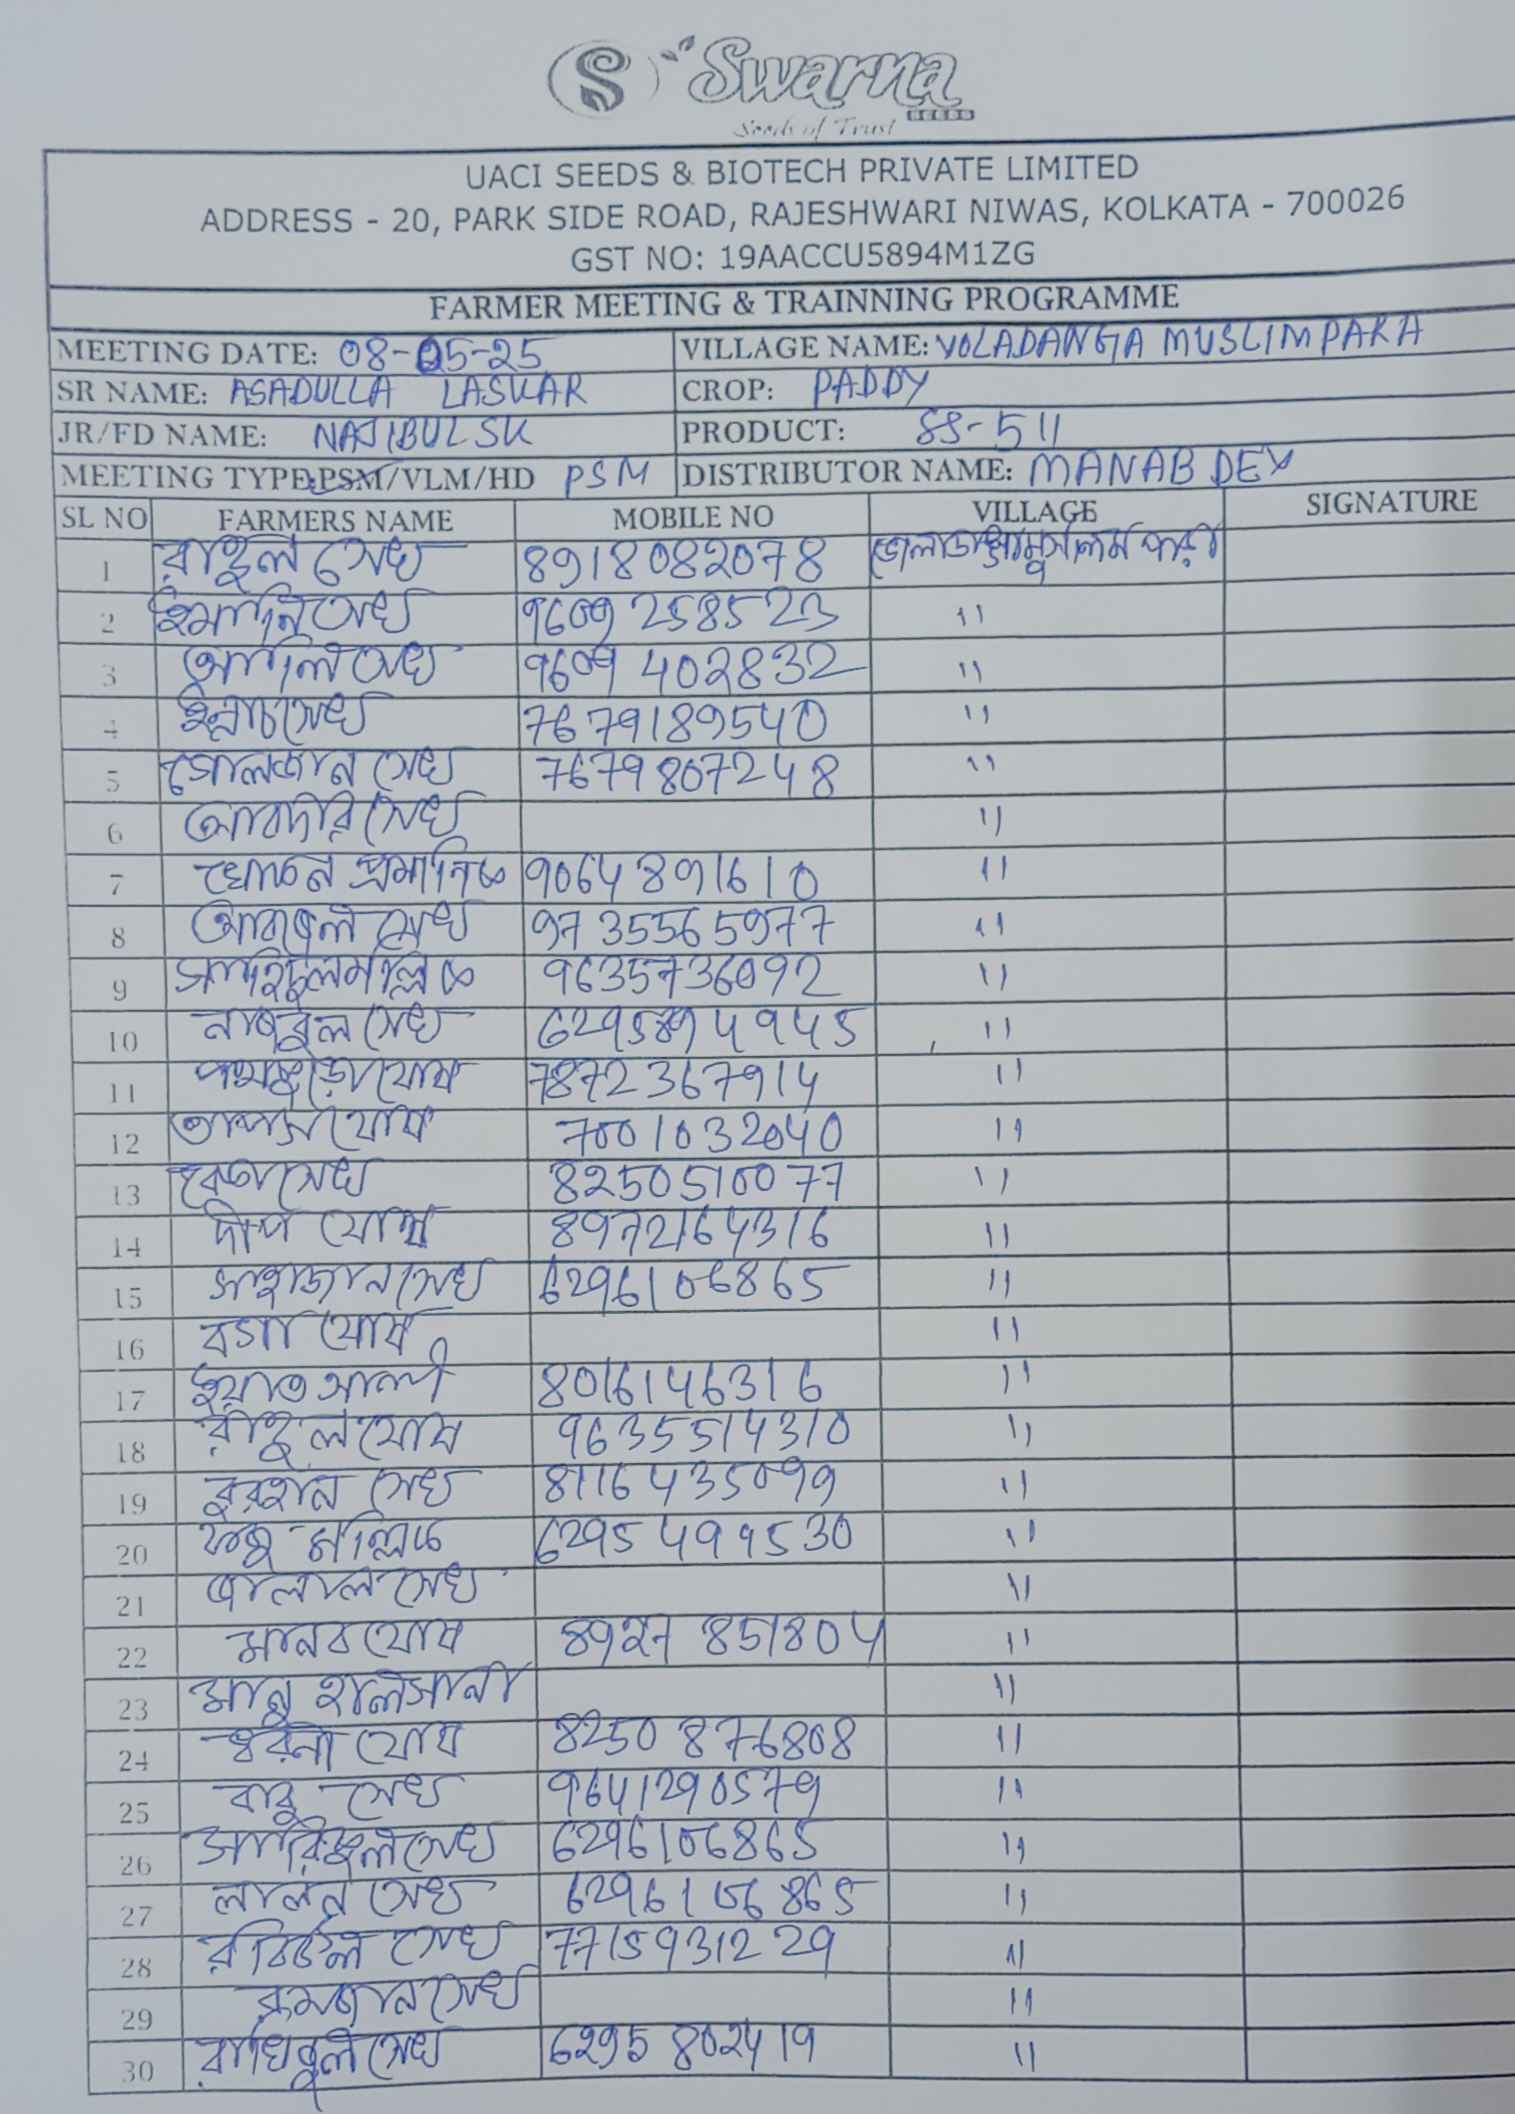 Swarna
SEEDS
Seeds of Trust
UACI SEEDS & BIOTECH PRIVATE LIMITED
ADDRESS - 20, PARK SIDE ROAD, RAJESHWARI NIWAS, KOLKATA - 700026
GST NO: 19AACCU5894M1ZG
FARMER MEETING & TRAINNING PROGRAMME
MEETING DATE: 08-05-25 VILLAGE NAME: VOLADANGA MUSLIMPARA
SR NAME: ASADULLA LASKAR CROP: PADDY
JR/FD NAME: NAJIBUL SK PRODUCT: SS-511
MEETING TYPE:PSM/VLM/HD PSM DISTRIBUTOR NAME: MANAB DEY
SL NO FARMERS NAME MOBILE NO VILLAGE SIGNATURE
1 রাহুল সেখ 8918082078 ভোলাডাঙ্গা মুসলিম পাড়া
2 সেখ 9609258523 "
3 সেখ 9609402832 "
4 সেখ 7679189540 "
5 গোলজান সেখ 7679807248 "
6 সেখ "
7 খোকন প্রমানিক 9064891610 "
8 সেখ 9735565977 "
9 মল্লিক 9635736092 "
10 সেখ 6295894945 "
11 ঘোষ 7872367914 "
12 তাপস ঘোষ 7001032040 "
13 সেখ 8250510077 "
14 দীপ ঘোষ 8972164316 "
15 সাহাজান সেখ 6296106865 "
16 ঘোষ "
17 হয়াত আলী 8016146316 "
18 রাহুল ঘোষ 9635514310 "
19 সেখ 8116435099 "
20 মল্লিক 6295499530 "
21 জালাল সেখ "
22 মানব ঘোষ 8927851804 "
23 মানু হালসানা "
24 ধরনী ঘোষ 8250876808 "
25 বাবু সেখ 9641290579 "
26 সেখ 6296106865 "
27 লালন সেখ 6296156865 "
28 রবিউল সেখ 7715931229 "
29 রমজান সেখ "
30 সেখ 6295802419 "